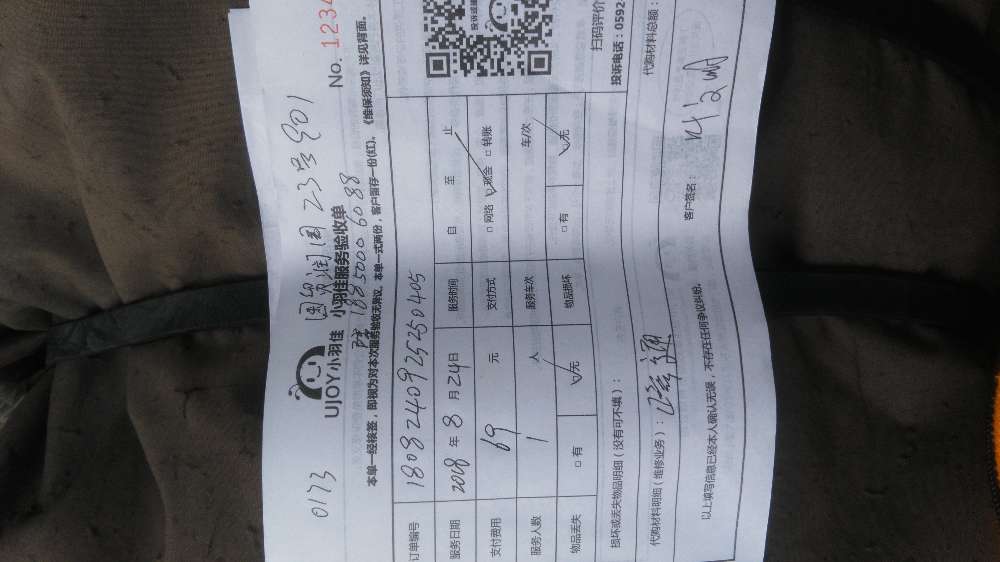 0173 国贸润园23号901
UJOY小羽佳 小羽佳服务验收单 No. 1234
18850006088
本单一经核签,即视为对本次服务验收无异议。本单一式两份,客户留存一份(红)。《维保须知》详见背面。
订单编号 1808240925250405
服务日期 2018 年 8 月 24 日 服务时间 自 至 止
支付费用 69 元 支付方式 □ 网络 ☑ 现金 □ 转账
服务人数 1 人 服务车次 车/次
物品丢失 □ 有 ☑ 无 物品损坏 □ 有 ☑ 无
扫码评价
投诉电话:0592
损坏或丢失物品明细(没有可不填):
代购材料明细(维修业务): 代购材料总额:
客户签名:
以上填写信息已经本人确认无误,不存在任何争议纠纷。